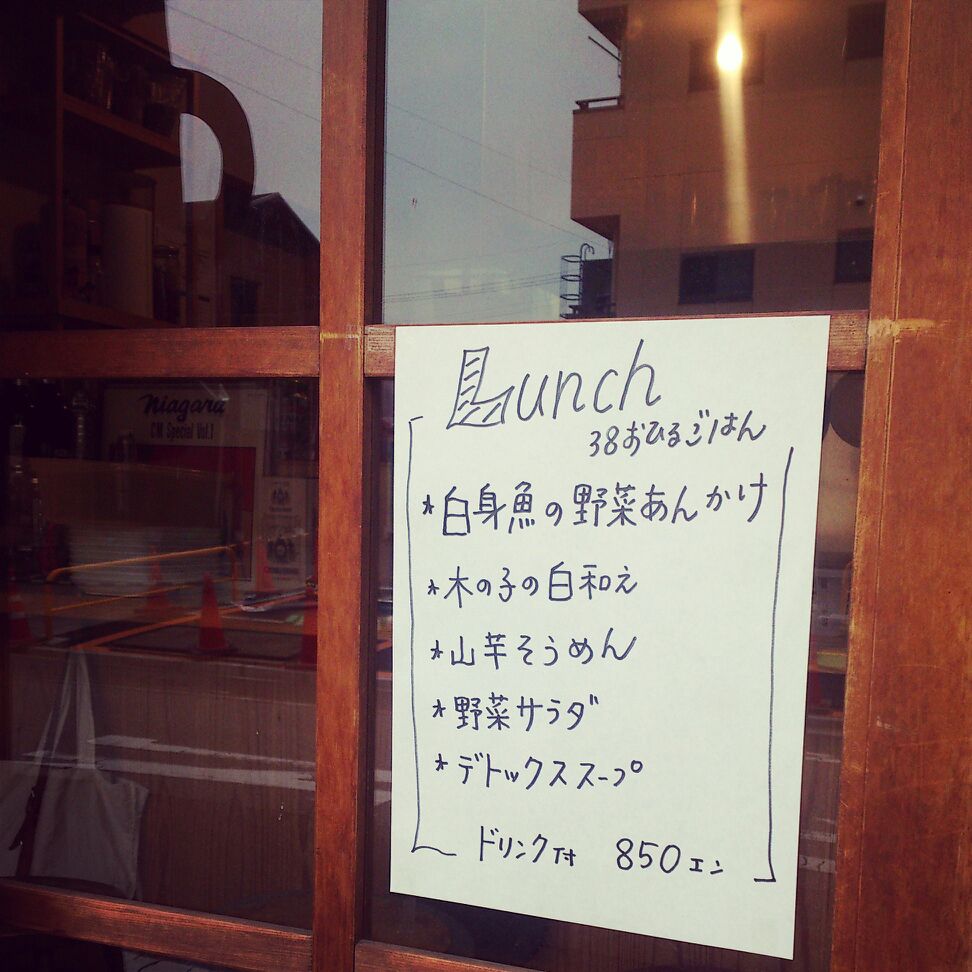 Niagara
CM Special Vol.1
Lunch
38おひるごはん
*白身魚の野菜あんかけ
*木の子の白和え
*山芋そうめん
*野菜サラダ
*デトックススープ
ドリンク付 850エン